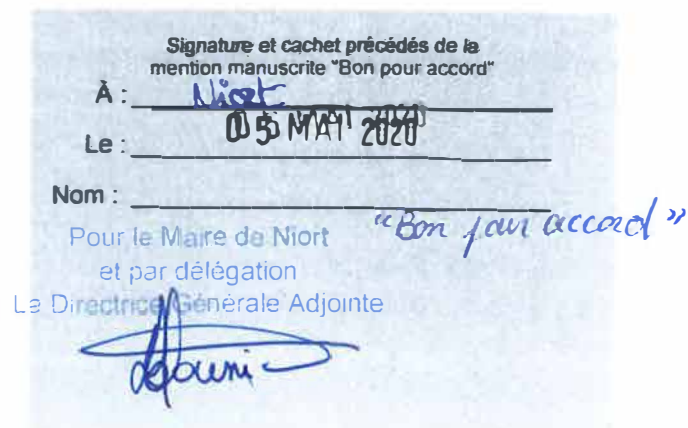 Signature et cachet précédés de la
mention manuscrite "Bon pour accord"
À : Niort
Le : 05 MAI 2020
Nom :
"Bon pour accord"
Pour le Maire de Niort
et par délégation
La Directrice Générale Adjointe